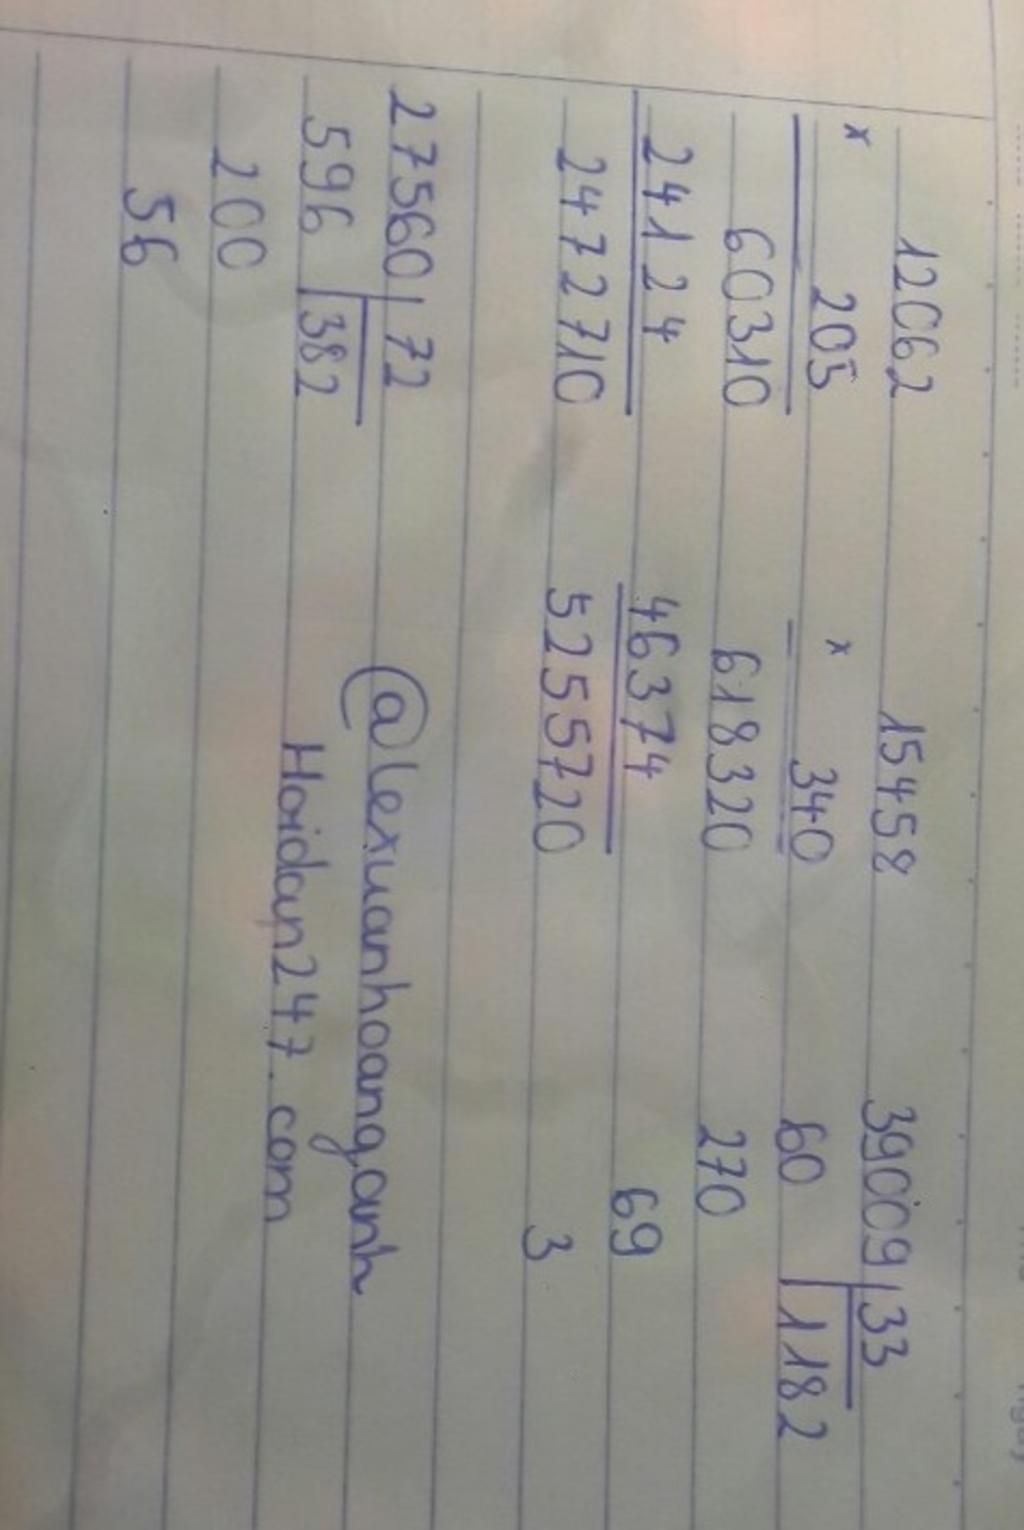 12062 15458 39009 33
x 205 x 340 60 1182
60310 618320 270
24124 46374 69
2472710 5255720 3
27560 72 @lexuanhoangoanh
596 382 Hoidap247.com
200
56